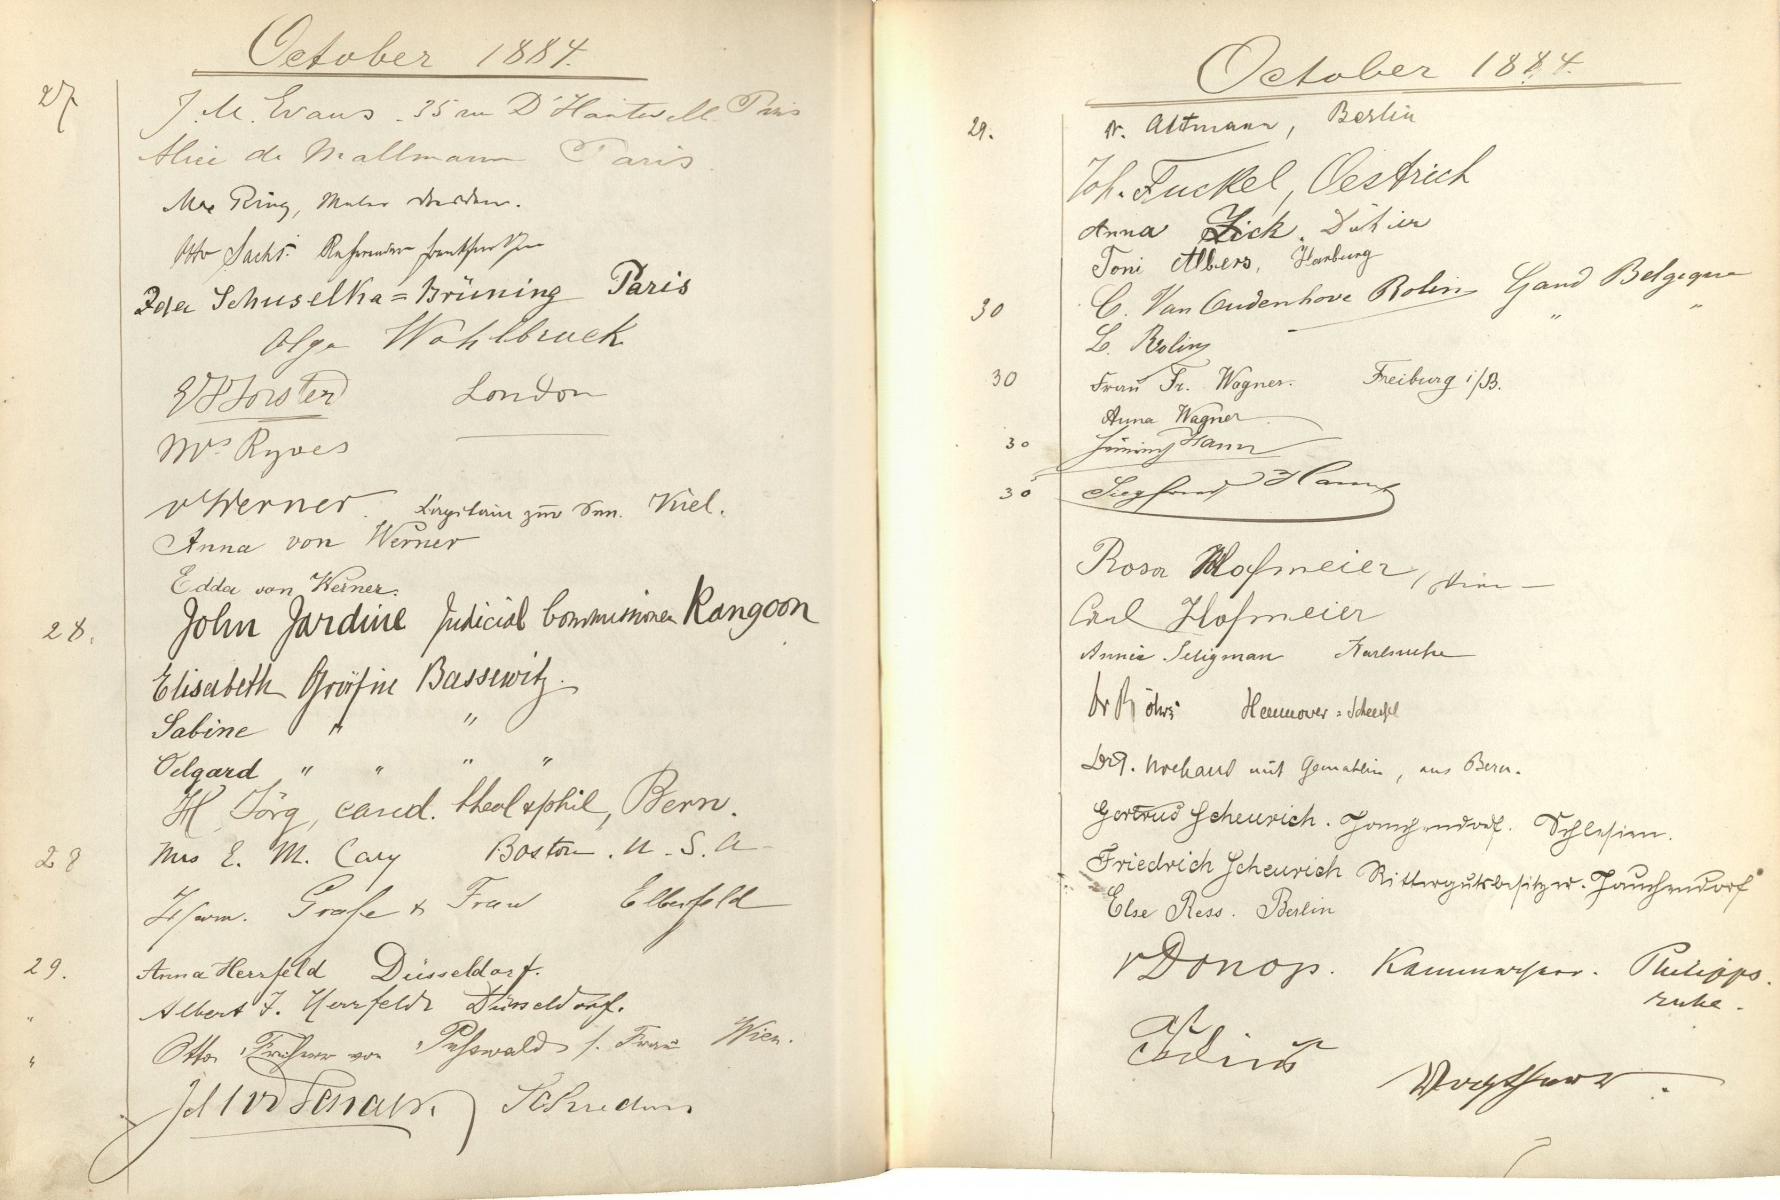 October 1884.
27
J. M. Evans . 35 rue D'Hauteville Paris
Alice de Mallmann Paris
Max Ring, Maler Dresden.
Otto Sachs Referendar Frankfurt
Ida Schuselka=Brüning Paris
Olga Wohlbruck
Forster London
Mrs Ryves
v Werner. Kapitain zur See. Kiel.
Anna von Werner
Edda von Werner.
28. John Jardine Judicial Commissioner Rangoon
Elisabeth Gräfin Bassewitz.
Sabine " "
Oelgard " " " "
H. Jörg, cand. theol & phil, Bern.
28 Mrs E. M. Cary Boston. U. S. A
Herm. Grafe & Frau Elberfeld
29. Anna Herrfeld Düsseldorf.
" Albert J. Herrfeldt Düsseldorf.
" Otto Freiherr von s. Frau Wien.
October 1884.
29. Altmann, Berlin
Joh. Fuckel, Oestrich
Anna Zick.
Toni Albers, Harburg
30 C. Van Oudenhove Rolin Gand Belgique
L. Rolin " "
30 Frau Fr. Wagner. Freiburg i/B.
Anna Wagner
30 Hann
30 Siegfried Hann
Rosa Hofmeier,
Carl Hofmeier
Annie Seligman Karlsruhe
Dr Hannover
mit Gemahlin, aus Bern.
Gertrud Scheurich. Jauchendorf. Schlesien.
Friedrich Scheurich Rittergutsbesitzer. Jauchendorf
Else Ress. Berlin
v Donop. Kammerherr. Philipps
ruhe.